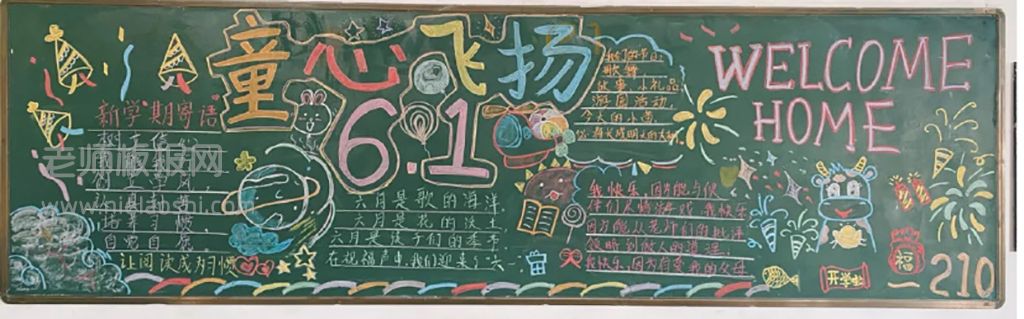 童心飞扬
6.1
WELCOME
HOME
新学期寄语
培养习惯
自觉自愿
让阅读成为习惯
老师板报网
六月是歌的海洋
六月是花的沃土
六月是孩子们的季节
在祝福声中,我们迎来了"六一"
歌舞
故事,小礼品
游园活动,
今天的小苗,
我快乐,因为能与伙
伴们尽情游戏,我快乐
因为能从老师们的批评
领略到做人的道理,
我快乐,因为有爱我的父母
开学啦
福
一 210